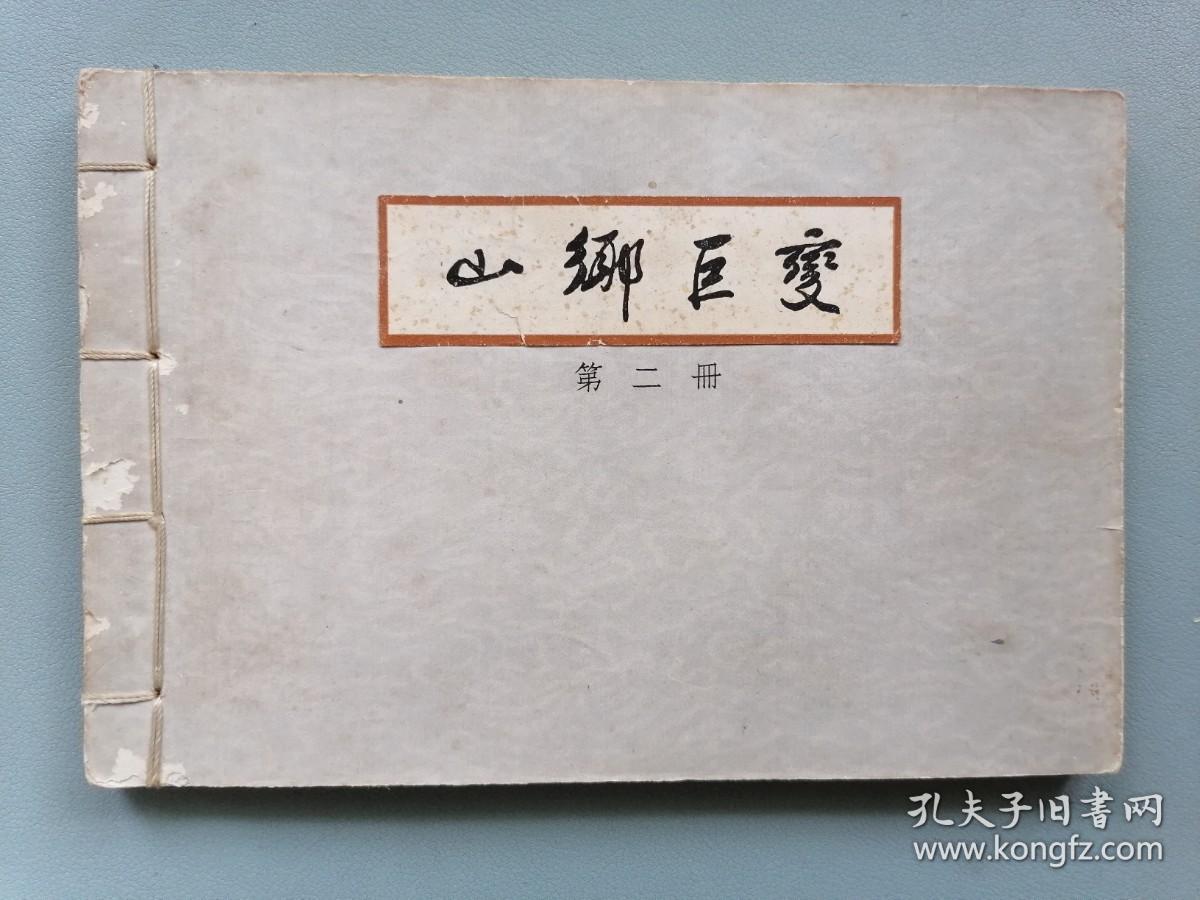 山鄉巨變
第二冊
孔夫子旧书网
www.kongfz.com